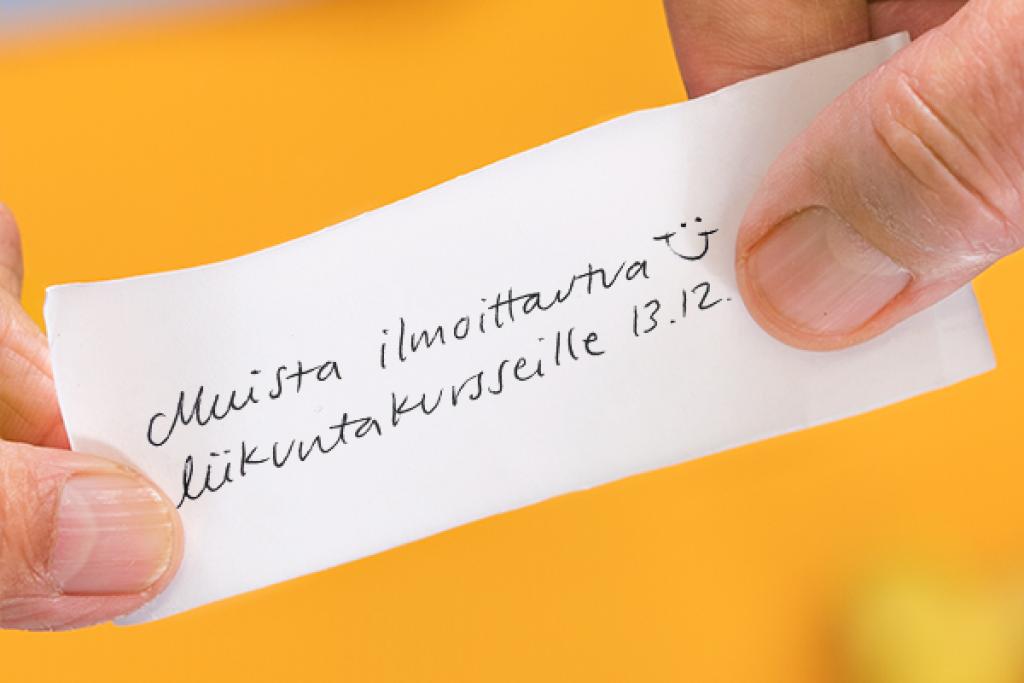 Muista ilmoittautua
liikuntakursseille 13.12.